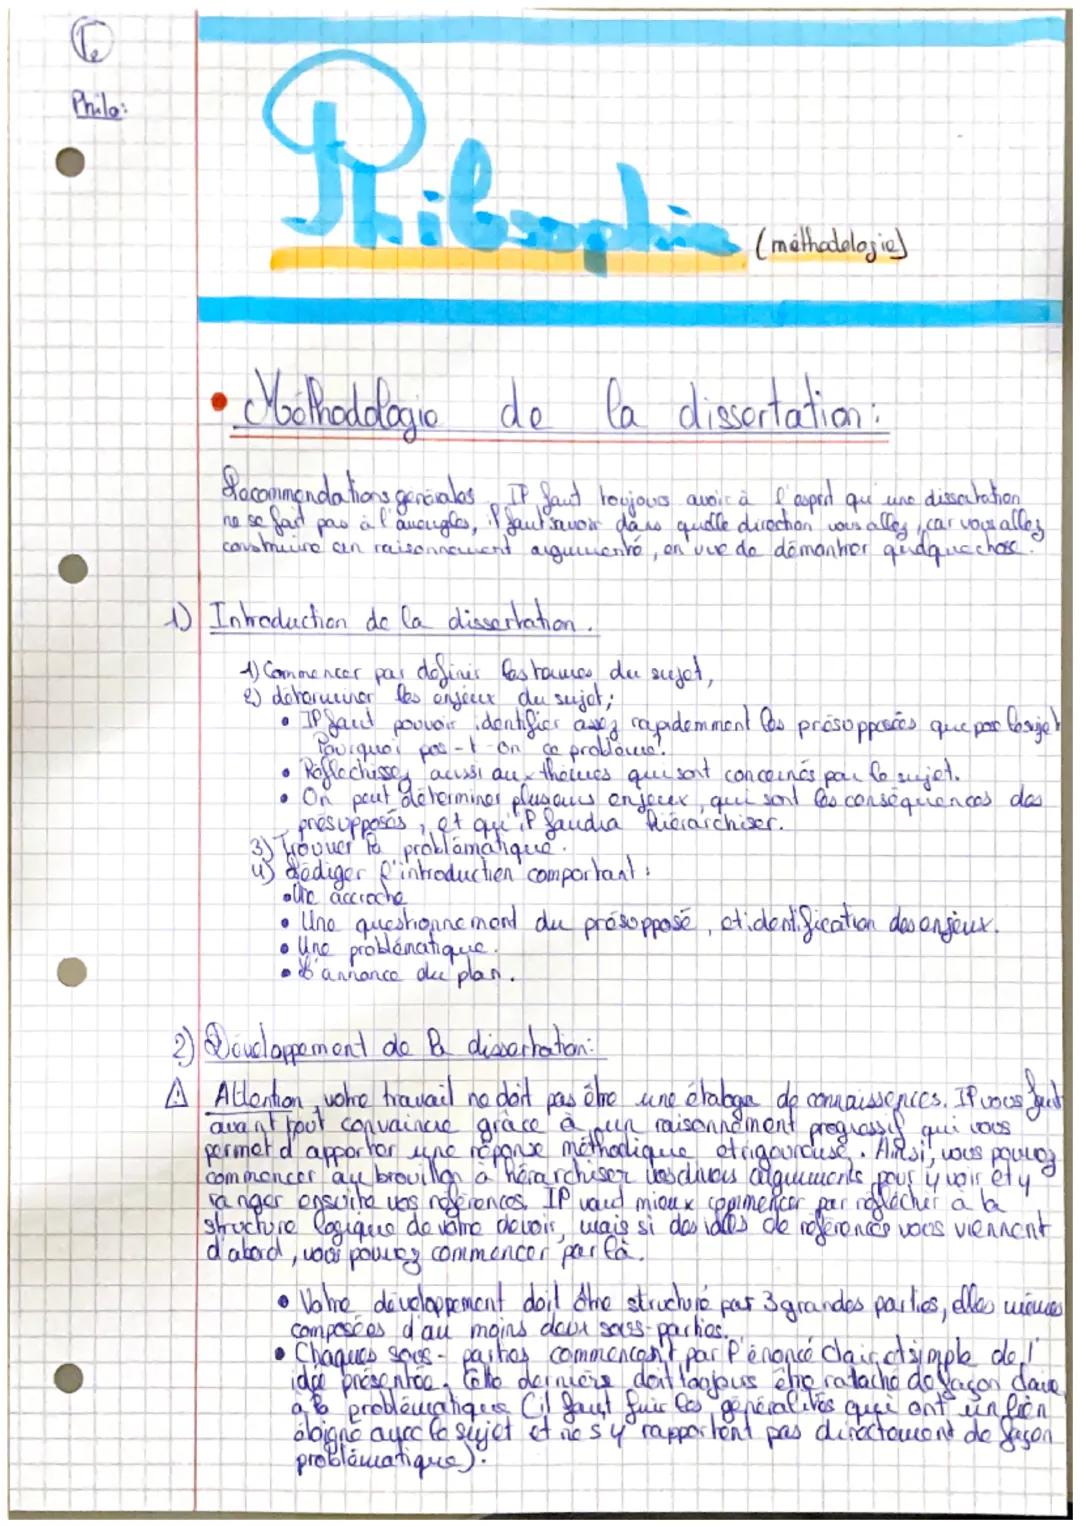 Te
Philo:
Philosophie (méthodologie)
• Méthodologie de la dissertation:
Recommendations générales. Il faut toujours avoir à l'esprit qu'une dissertation
ne se fait pas à l'aveugles, il faut savoir dans quelle direction vous allez, car vous allez
construire un raisonnement argumenté, en vue de démontrer quelque chose.
1) Introduction de la dissertation.
1) Commencer par définir les termes du sujet,
2) déterminer les enjeux du sujet;
• Il faut pouvoir identifier assez rapidemment les présupposés que pose le sujet
Pourquoi pos-t-on ce problème?
• Réflechissez aussi aux thèmes qui sont concernés par le sujet.
• On peut déterminer plusieurs enjeux, qui sont les conséquences des
présupposés, et qu'il faudra hiérarchiser.
3) Trouver la problématique.
4) Rédiger l'introduction comportant:
• Une accroche
• Une questionnement du présopposé, et identification des enjeux.
• Une problématique.
• L'annonce du plan.
2) Développement de la dissertation:
⚠ Attention, votre travail ne doit pas être une étalage de connaissences. Il vous faut
avant tout convaincre grâce à un raisonnement progressif qui vous
permet d'apporter une réponse méthodique et rigoureuse. Ainsi, vous pouvez
commencer au brouillon à hérarchiser vos divers arguments pour y voir et y
ranger ensuite vos références. Il vaud mieux commencer par réflechir à la
structure logique de votre devoir, mais si des idées de références vous viennent
d'abord, vous pouvez commencer par là.
• Votre développement doit être structuré par 3 grandes parties, elles mêmes
composées d'au moins deux sous-parties.
• Chaques sous-parties commencent par l'énoncé clair et simple de l'
idée présentée. Cette dernière doit toujous être rataché de façon claire
à la problématique (il faut fuir les généralités qui ont un lien
éloigné avec le sujet et ne s'y rapportent pas directement de façon
problématique).